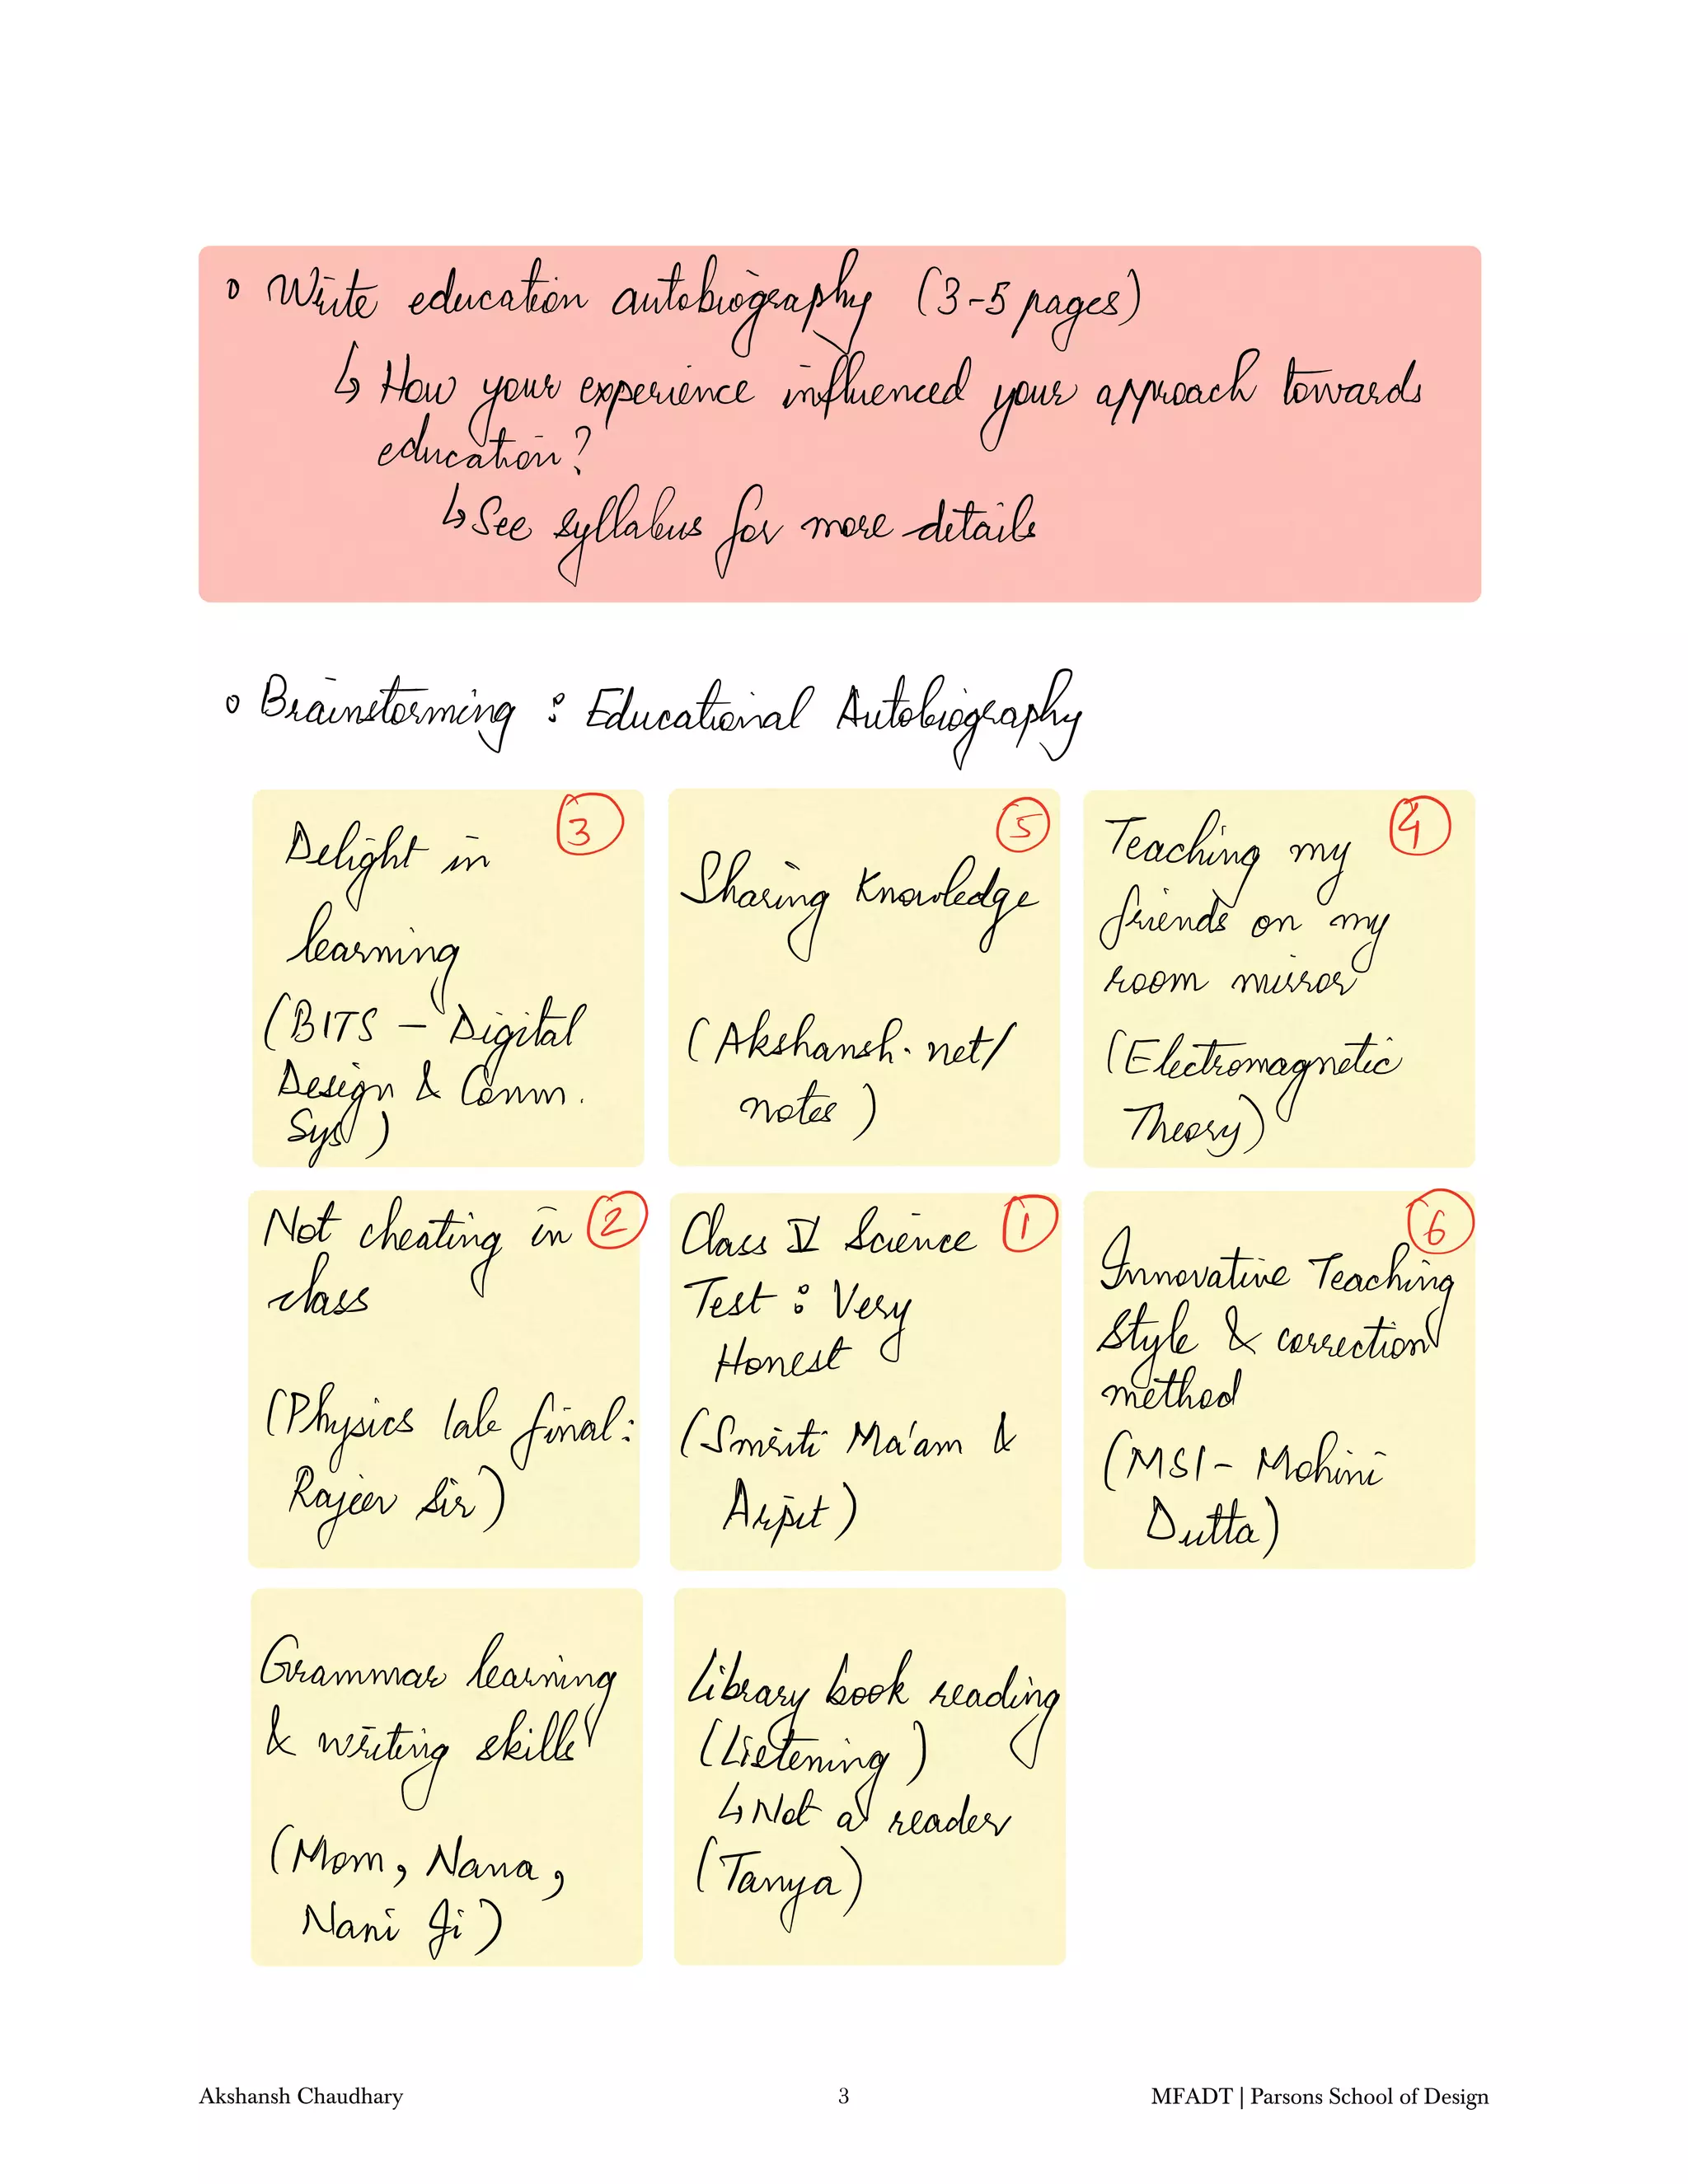 Write education autobiography (3-5 pages)
↳ How your experience influenced your approach towards
education?
↳ See syllabus for more details
Brainstorming : Educational Autobiography
3
Delight in
learning
(BITS - Digital
Design & Comm.
Sys)
5
Sharing Knowledge
(Akshansh.net/
notes)
4
Teaching my
friends on my
room mirror
(Electromagnetic
Theory)
Not cheating in 2
class
(Physics lab final:
Rajeev Sir)
Class V Science 1
Test : Very
Honest
(Smriti Ma'am &
Arpit)
6
Innovative Teaching
Style & correction
method
(MSI - Mohini
Dutta)
Grammar learning
& writing skills
(Mom, Nana,
Nani Ji)
Library book reading
(Listening)
↳ Not a reader
(Tanya)
Akshansh Chaudhary 3 MFADT | Parsons School of Design